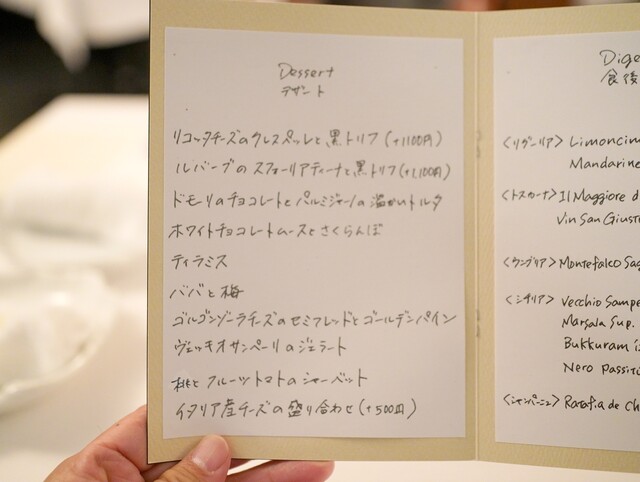 Dessert
デザート
リコッタチーズのクレスペッレと黒トリフ(+1100円)
ルバーブのスフォーリアティーナと黒トリフ(+1,100円)
ドモーリのチョコレートとパルミジャーノの温かいトルタ
ホワイトチョコレートムースとさくらんぼ
ティラミス
ババと梅
ゴルゴンゾーラチーズのセミフレッドとゴールデンパイン
ヴェッキオサンペーリのジェラート
桃とフルーツトマトのシャーベット
イタリア産チーズの盛り合わせ(+500円)
Dige
食後
<リグーリア> Limoncin
Mandarine
<トスカーナ> Il Maggiore d
Vin San Giusto
<ウンブリア> Montefalco Sag
<シチリア> Vecchio Sampe
Marsala Sup.
Bukkuram i
Nero Passito
<シャンパーニュ> Ratafia de Ch